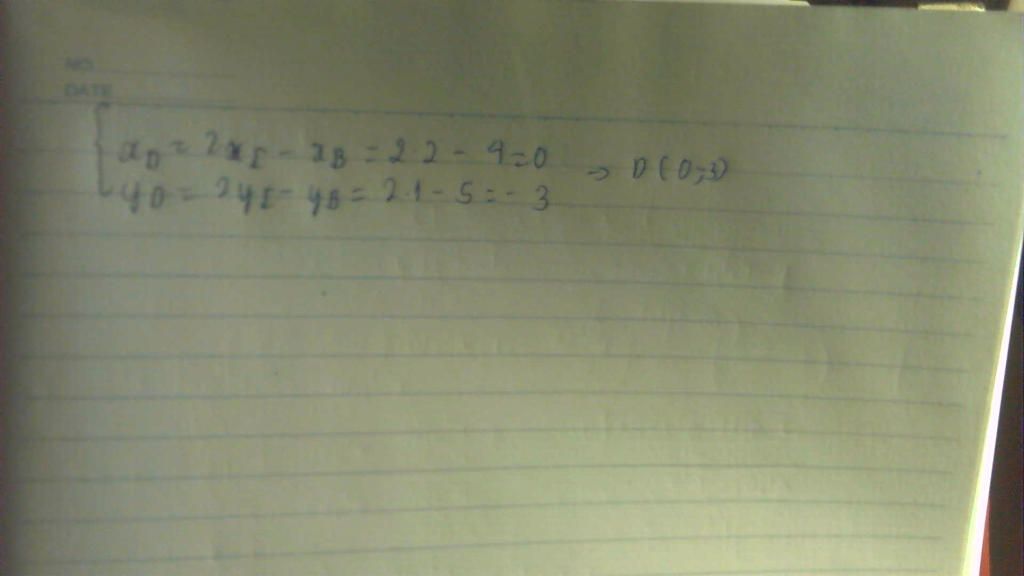 NO.
DATE
x_D = 2x_I - x_B = 2.2 - 4 = 0
y_D = 2y_I - y_B = 2.1 - 5 = -3
→ D(0;3)